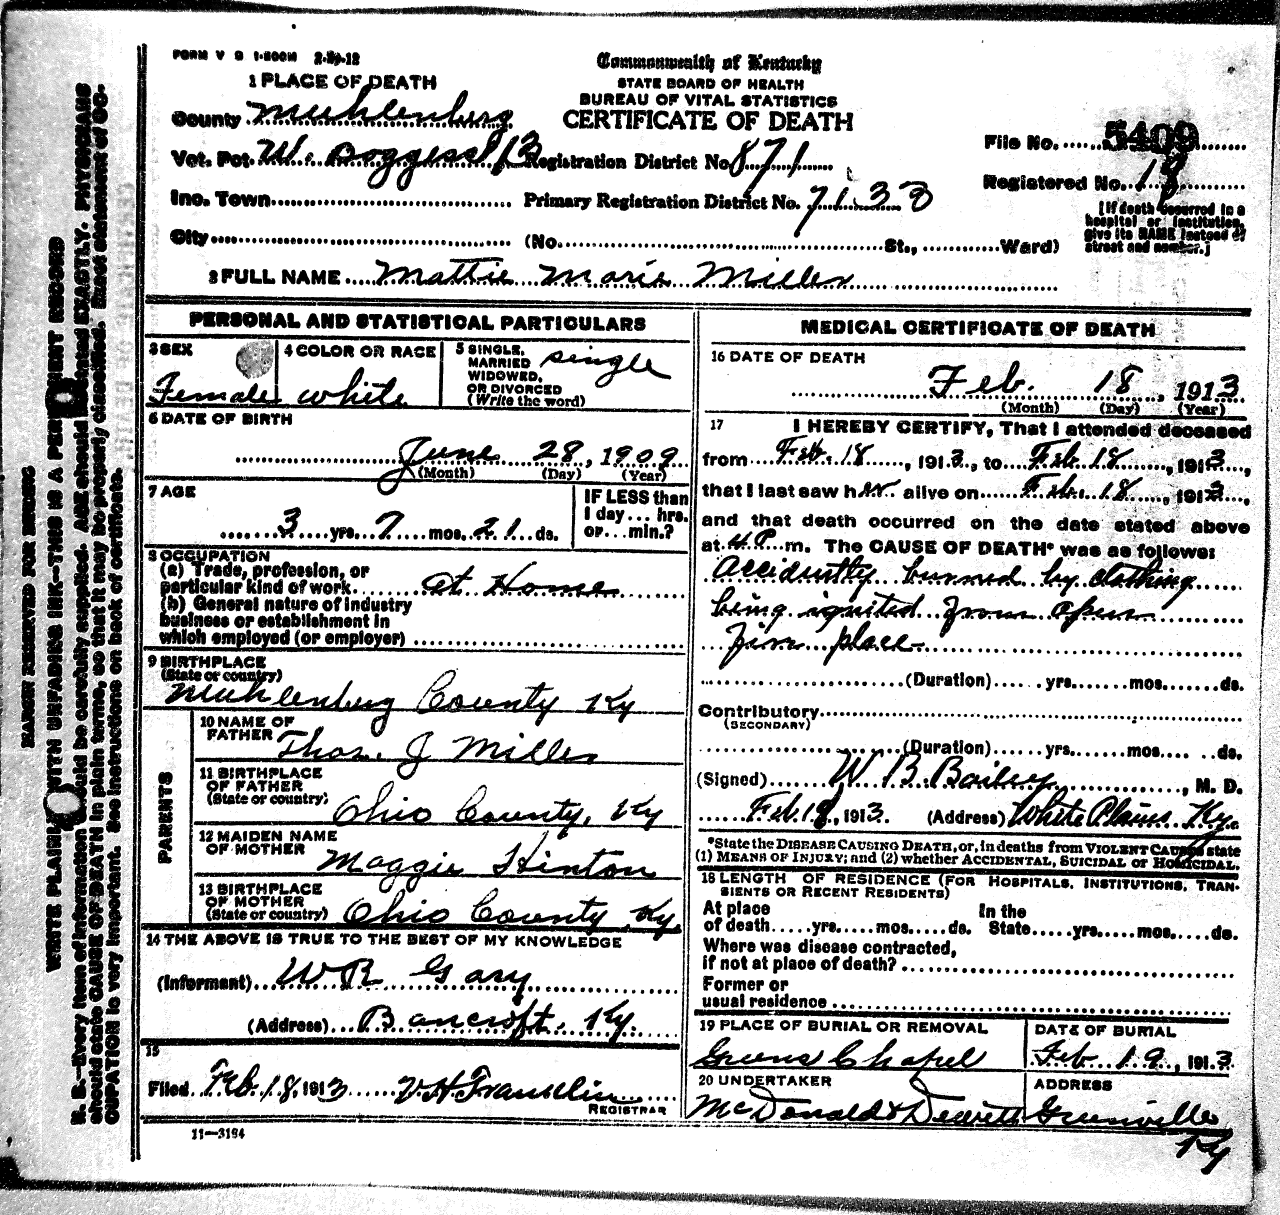 FORM V S 1-500M 2-29-12
Commonwealth of Kentucky
STATE BOARD OF HEALTH
BUREAU OF VITAL STATISTICS
CERTIFICATE OF DEATH
1 PLACE OF DEATH
County Muhlenberg
Vot. Pct. W. Boggess 13 Registration District No. 871
Inc. Town Primary Registration District No. 7133
City (No. St., Ward)
File No. 5409
Registered No. 18
[If death occurred in a
hospital or institution,
give its NAME instead of
street and number.]
2 FULL NAME Mattie Marie Miller
PERSONAL AND STATISTICAL PARTICULARS
3 SEX
Female
4 COLOR OR RACE
white
5 SINGLE,
MARRIED
WIDOWED,
OR DIVORCED
(Write the word)
single
6 DATE OF BIRTH
June 28, 1909
(Month) (Day) (Year)
7 AGE
3 yrs. 7 mos. 21 ds.
IF LESS than
1 day... hrs.
or... min.?
8 OCCUPATION
(a) Trade, profession, or
particular kind of work at Home
(b) General nature of industry
business or establishment in
which employed (or employer)
9 BIRTHPLACE
(State or country)
Muhlenberg County Ky
PARENTS
10 NAME OF
FATHER Thos. J Miller
11 BIRTHPLACE
OF FATHER
(State or country)
Ohio County, Ky
12 MAIDEN NAME
OF MOTHER Maggie Hinton
13 BIRTHPLACE
OF MOTHER
(State or country) Ohio County, Ky.
14 THE ABOVE IS TRUE TO THE BEST OF MY KNOWLEDGE
(Informant) W R Gary
(Address) Bancroft, Ky.
15
Filed Feb 18, 1913 V. H. Franklin
REGISTRAR
11—3184
MEDICAL CERTIFICATE OF DEATH
16 DATE OF DEATH
Feb. 18, 1913
(Month) (Day) (Year)
17 I HEREBY CERTIFY, That I attended deceased
from Feb. 18, 1913, to Feb 18, 1913,
that I last saw her alive on Feb. 18, 1913,
and that death occurred on the date stated above
at 4 P m. The CAUSE OF DEATH* was as follows:
Accidently burned by clothing
being ignited from open
fire place
(Duration) yrs. mos. ds.
Contributory
(SECONDARY)
(Duration) yrs. mos. ds.
(Signed) W. B. Bailey, M. D.
Feb 18, 1913. (Address) White Plains Ky.
*State the DISEASE CAUSING DEATH, or, in deaths from VIOLENT CAUSES state
(1) MEANS OF INJURY; and (2) whether ACCIDENTAL, SUICIDAL or HOMICIDAL.
18 LENGTH OF RESIDENCE (FOR HOSPITALS, INSTITUTIONS, TRAN-
SIENTS OR RECENT RESIDENTS)
At place In the
of death yrs. mos. ds. State yrs. mos. ds.
Where was disease contracted,
if not at place of death?
Former or
usual residence
19 PLACE OF BURIAL OR REMOVAL
Greens Chapel
DATE OF BURIAL
Feb 19, 1913
20 UNDERTAKER
McDonald & Dewitt
ADDRESS
Greenville
Ky
MARGIN RESERVED FOR BINDING
WRITE PLAINLY WITH UNFADING INK—THIS IS A PERMANENT RECORD
N. B.—Every item of information should be carefully supplied. AGE should be stated EXACTLY. PHYSICIANS
should state CAUSE OF DEATH in plain terms, so that it may be properly classified. Exact statement of OC-
CUPATION is very important. See instructions on back of certificate.